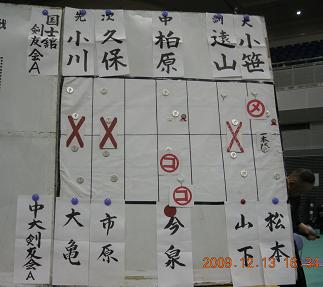 国士舘剣友会A
先
小川
次
久保
中
柏原
副
遠山
大
小笹
メ
コ
コ
一本勝
中大剣友会A
大亀
市原
今泉
山下
松本
2009.12.13 16:34